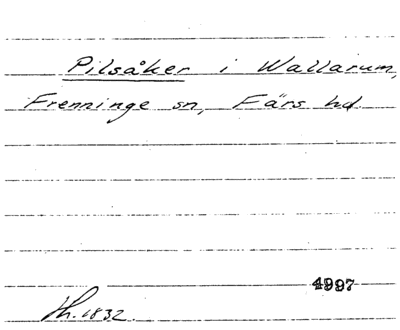 Pilsåker i Wallarum,
Frenninge sn, Färs hd
4997
Th. 1832.